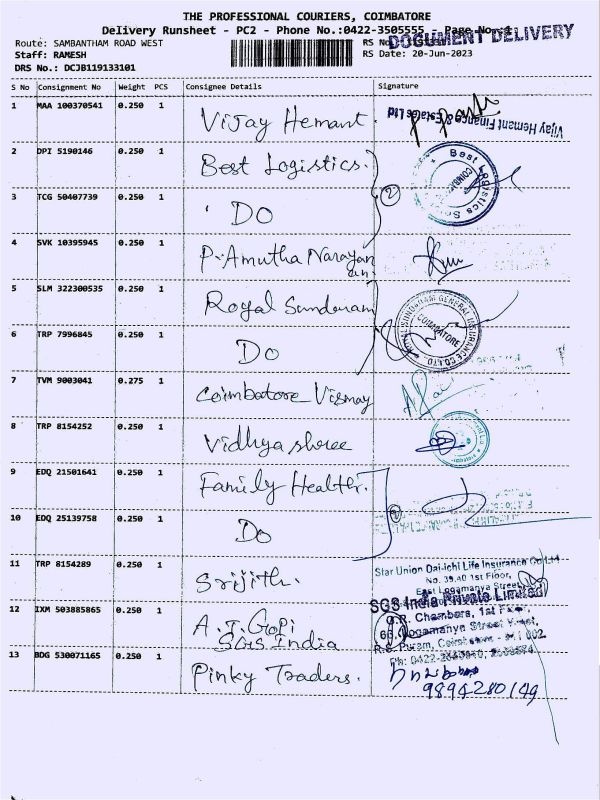 THE PROFESSIONAL COURIERS, COIMBATORE
Delivery Runsheet - PC2 - Phone No.:0422-3505555 Page No. 1
DOCUMENT DELIVERY
Route: SAMBANTHAM ROAD WEST
RS No
Staff: RAMESH
RS Date: 20-Jun-2023
DRS No.: DCJB119133101
S No Consignment No Weight PCS Consignee Details Signature
1 MAA 100370541 0.250 1 Vijay Hemant.
Vijay Hement Finance & Estates Ltd
2 DPI 5190146 0.250 1 Best Logistics.
Best Logistics
3 TCG 50407739 0.250 1 Do
2
4 SVK 10395945 0.250 1 P. Amutha Narayanan
5 SLM 322300535 0.250 1 Royal Sundaram
ROYAL SUNDARAM GENERAL INSURANCE CO. LTD.
COIMBATORE
6 TRP 7996845 0.250 1 Do
7 TVM 9003041 0.275 1 Coimbatore Vismay
8 TRP 8154252 0.250 1 Vidhyashree
9 EDQ 21501641 0.250 1 Family Health.
10 EDQ 25139758 0.250 1 Do
11 TRP 8154289 0.250 1 Srijith.
Star Union Dai-ichi Life Insurance Co Ltd
1st Floor,
East Logamanya Street
12 IXM 503885865 0.250 1 A.T. Gopi
SGS India
SGS India Private Limited
G.R. Chambers, 1st Floor,
Logamanya Street West,
R.S. Puram, Coimbatore - 641 002.
13 BDG 530071165 0.250 1 Pinky Traders.
9894280149